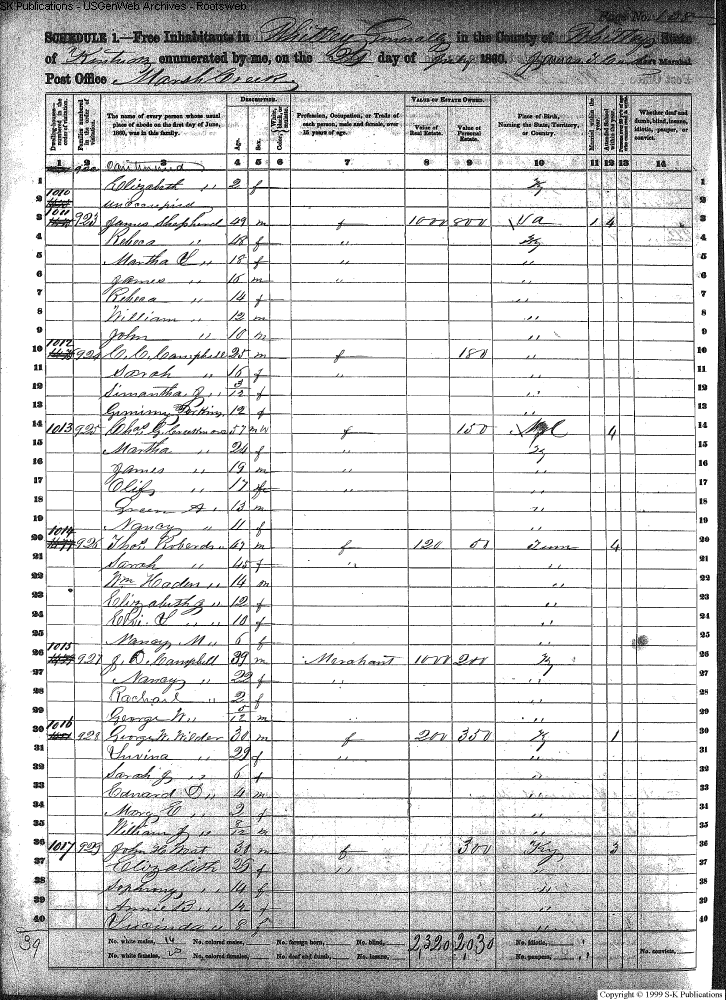 SK Publications - USGenWeb Archives - Rootsweb
Page No. 128
SCHEDULE 1.—Free Inhabitants in Whitley Generally in the County of Whitley State
of Kentucky enumerated by me, on the day of July 1860. Ass't Marshal
Post Office Marsh Creek
Dwelling-houses—numbered in the order of visitation.
Families numbered in the order of visitation.
The name of every person whose usual place of abode on the first day of June, 1860, was in this family.
DESCRIPTION.
Age.
Sex.
Color, White, black, or mulatto.
Profession, Occupation, or Trade of each person, male and female, over 15 years of age.
VALUE OF ESTATE OWNED.
Value of Real Estate.
Value of Personal Estate.
Place of Birth, Naming the State, Territory, or Country.
Married within the year.
Attended School within the year.
Whether deaf and dumb, blind, insane, idiotic, pauper, or convict.
1 2 3 4 5 6 7 8 9 10 11 12 13 14
Continued
1 Elizabeth " 2 f Ky 1
2 1010 unoccupied 2
3 1011 923 James Shepherd 49 m f 1000 800 Va 1 4 3
4 Rebeca " 48 f " Ky 4
5 Martha " 18 f " " 5
6 James " 16 m " " 6
7 Rebeca " 14 f " 7
8 William " 12 m " 8
9 John " 10 m " 9
10 1012 924 C. C. Campbell 25 m f 180 " 10
11 Sarah " 16 f " " 11
12 Simantha J " 3/12 f " 12
13 Perkins 12 f " 13
14 1013 925 Chas G. 57 m w f 150 4 14
15 Martha " 24 f " Ky 15
16 James " 19 m " " 16
17 " 17 " " 17
18 Green A " 13 m " 18
19 Nancy " 11 f " 19
20 1014 926 Thos Roberds 67 m f 120 50 Tenn 4 20
21 Sarah " 45 f " " 21
22 Wm Haden " 14 m " 22
23 Elizabeth " 12 f " 23
24 " 10 f " 24
25 Nancy M " 6 f " 25
26 1015 927 J. D. Campbell 39 m Merchant 1000 200 Ky 26
27 Nancy " 22 f " " 27
28 Rachail " 2 f " 28
29 George W " 5/12 m " 29
30 1016 928 George W. Wilder 30 m f 200 350 Ky 1 30
31 " 29 f " " 31
32 Sarah J " 6 f " 32
33 Edward D " 4 m " 33
34 Mary E " 2 f " 34
35 William J " 8/12 m " 35
36 1017 929 John H 31 m f 300 Ky 3 36
37 Elizabeth 29 f " " 37
38 " 14 f " 38
39 Annie B " 12 f " 39
40 Lucinda " 8 f " 40
39
No. white males, 14 No. colored males, No. foreign born, No. blind, 2,320 2,030 No. idiotic,
No. white females, No. colored females, No. deaf and dumb, No. insane, No. paupers, No. convicts,
Copyright © 1999 S-K Publications